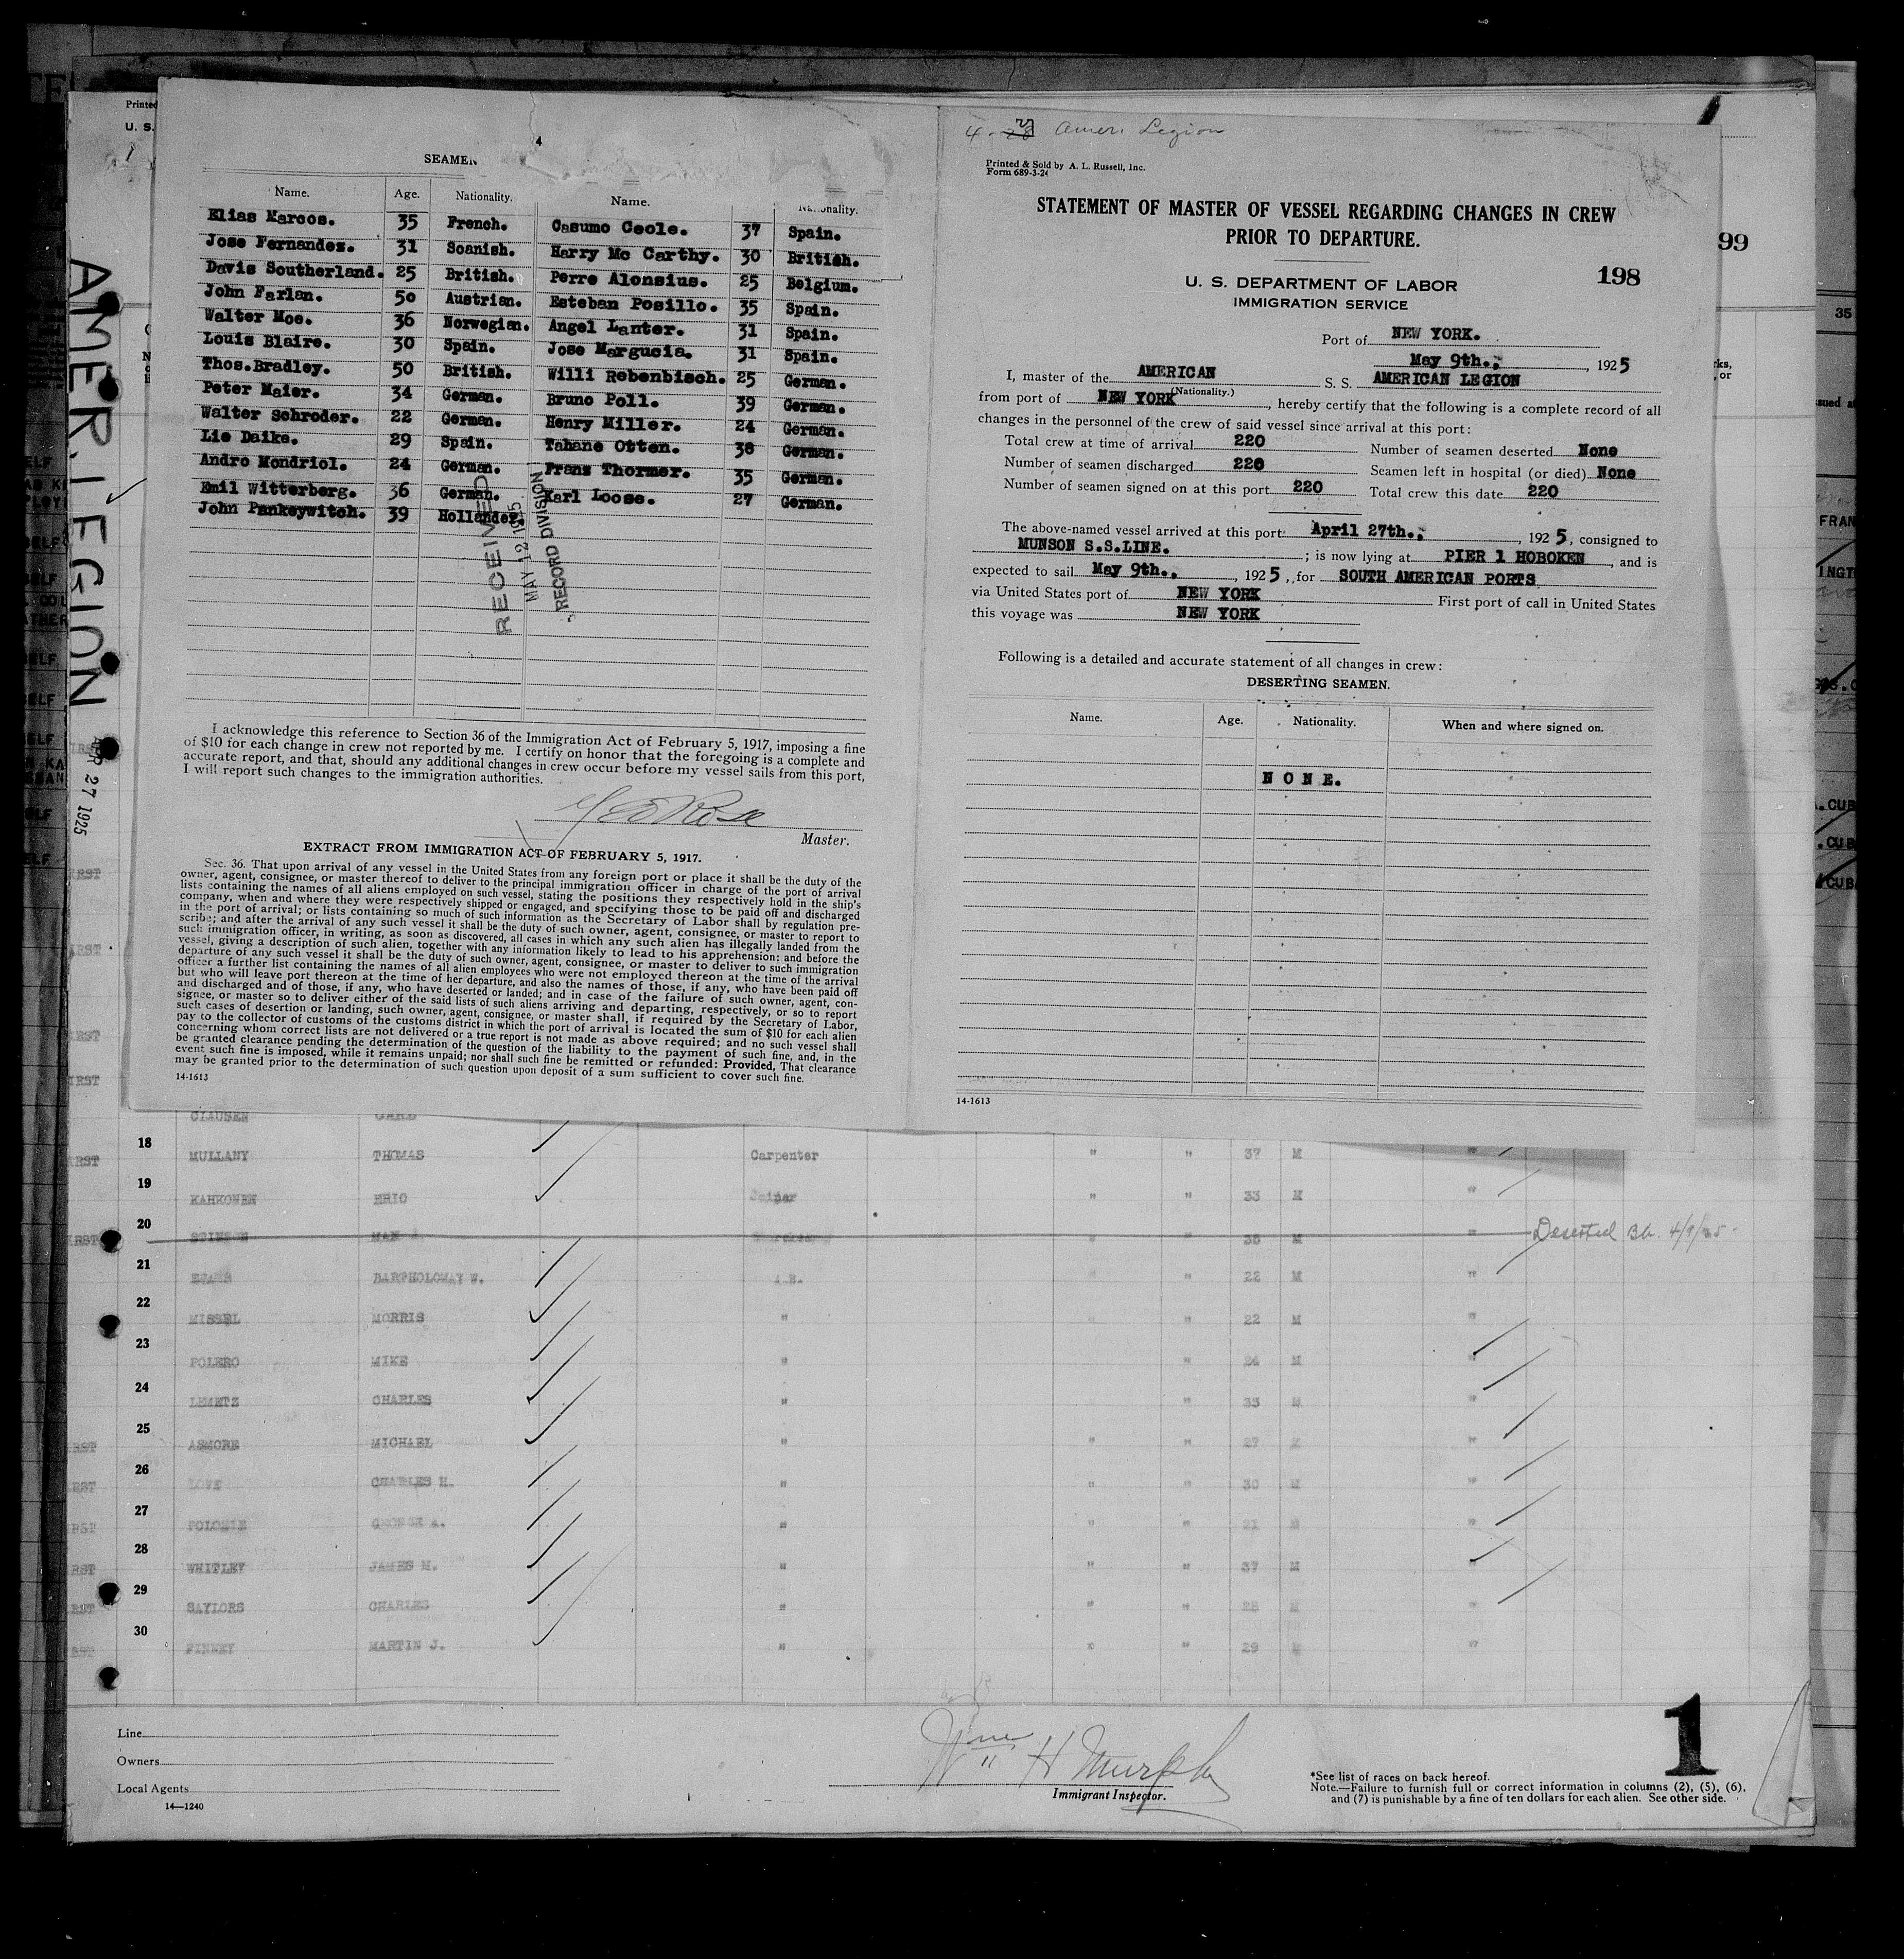 4
SEAMEN
Name. Age. Nationality. Name. Nationality.
Elias Marcos. 35 French. Casumo Ceole. 37 Spain.
Jose Fernandez. 31 Scanish. Harry Mc Carthy. 30 British.
Davis Southerland. 25 British. Perre Alonsius. 25 Belgium.
John Farlan. 50 Austrian. Esteban Posillo. 35 Spain.
Walter Moe. 36 Norwegian. Angel Lanter. 31 Spain.
Louis Blaire. 30 Spain. Jose Margucia. 31 Spain.
Thos.Bradley. 50 British. Willi Rebenbisch. 25 German.
Peter Maier. 34 German. Bruno Poll. 39 German.
Walter Schroder. 22 German. Henry Miller. 24 German.
Lie Daike. 29 Spain. Tahane Otten. 36 German.
Andro Mondriol. 24 German. Frans Thormer. 35 German.
Emil Witterberg. 36 German. Karl Loose. 27 German.
John Pankeywitch. 39 Hollander.
RECEIVED
MAY 12 1925
RECORD DIVISION
I acknowledge this reference to Section 36 of the Immigration Act of February 5, 1917, imposing a fine
of $10 for each change in crew not reported by me. I certify on honor that the foregoing is a complete and
accurate report, and that, should any additional changes in crew occur before my vessel sails from this port,
I will report such changes to the immigration authorities.
Master.
EXTRACT FROM IMMIGRATION ACT OF FEBRUARY 5, 1917.
Sec. 36. That upon arrival of any vessel in the United States from any foreign port or place it shall be the duty of the
owner, agent, consignee, or master thereof to deliver to the principal immigration officer in charge of the port of arrival
lists containing the names of all aliens employed on such vessel, stating the positions they respectively hold in the ship's
company, when and where they were respectively shipped or engaged, and specifying those to be paid off and discharged
in the port of arrival; or lists containing so much of such information as the Secretary of Labor shall by regulation pre-
scribe; and after the arrival of any such vessel it shall be the duty of such owner, agent, consignee, or master to report to
such immigration officer, in writing, as soon as discovered, all cases in which any such alien has illegally landed from the
vessel, giving a description of such alien, together with any information likely to lead to his apprehension; and before the
departure of any such vessel it shall be the duty of such owner, agent, consignee, or master to deliver to such immigration
officer a further list containing the names of all alien employees who were not employed thereon at the time of the arrival
but who will leave port thereon at the time of her departure, and also the names of those, if any, who have been paid off
and discharged and of those, if any, who have deserted or landed; and in case of the failure of such owner, agent, con-
signee, or master so to deliver either of the said lists of such aliens arriving and departing, respectively, or so to report
such cases of desertion or landing, such owner, agent, consignee, or master shall, if required by the Secretary of Labor,
pay to the collector of customs of the customs district in which the port of arrival is located the sum of $10 for each alien
concerning whom correct lists are not delivered or a true report is not made as above required; and no such vessel shall
be granted clearance pending the determination of the question of the liability to the payment of such fine, and, in the
event such fine is imposed, while it remains unpaid; nor shall such fine be remitted or refunded: Provided, That clearance
may be granted prior to the determination of such question upon deposit of a sum sufficient to cover such fine.
14-1613
Amer. Legion
Printed & Sold by A. L. Russell, Inc.
Form 689-3-24
STATEMENT OF MASTER OF VESSEL REGARDING CHANGES IN CREW
PRIOR TO DEPARTURE.
198
U. S. DEPARTMENT OF LABOR
IMMIGRATION SERVICE
Port of NEW YORK.
May 9th., 1925
I, master of the AMERICAN S. S. AMERICAN LEGION
(Nationality.)
from port of NEW YORK, hereby certify that the following is a complete record of all
changes in the personnel of the crew of said vessel since arrival at this port:
Total crew at time of arrival 220 Number of seamen deserted None
Number of seamen discharged 220 Seamen left in hospital (or died) None
Number of seamen signed on at this port 220 Total crew this date 220
The above-named vessel arrived at this port April 27th., 1925, consigned to
MUNSON S.S.LINE. ; is now lying at PIER 1 HOBOKEN, and is
expected to sail May 9th., 1925, for SOUTH AMERICAN PORTS
via United States port of NEW YORK First port of call in United States
this voyage was NEW YORK
Following is a detailed and accurate statement of all changes in crew:
DESERTING SEAMEN.
Name. Age. Nationality. When and where signed on.
N O N E.
14-1613
Printed
U. S.
99
35
AMER. LEGION
APR 27 1925
CLAUSEN
18 MULLANY THOMAS Carpenter " " 37 M "
19 KAHKONEN ERIC " " 33 M "
20 35 M " Deserted
21 BARTHOLOMAY W. A.B. " 22 M "
22 MISSEL MORRIS " " 22 M "
23 POLERO MIKE " " 24 M "
24 LEMETZ CHARLES " " 35 M "
25 ASMORE MICHAEL " " " 27 "
26 LOVE CHARLES H. " " " 30 M "
27 GEORGE A. " " " 21 M "
28 WHITLEY JAMES M. " " " 37 M "
29 SAYLORS CHARLES " " " 28 M "
30 FINNEY MARTIN J. " " " 29 "
Line
Owners
Local Agents
14—1240
Wm H Murphy
Immigrant Inspector.
*See list of races on back hereof.
Note.—Failure to furnish full or correct information in columns (2), (5), (6),
and (7) is punishable by a fine of ten dollars for each alien. See other side.
1